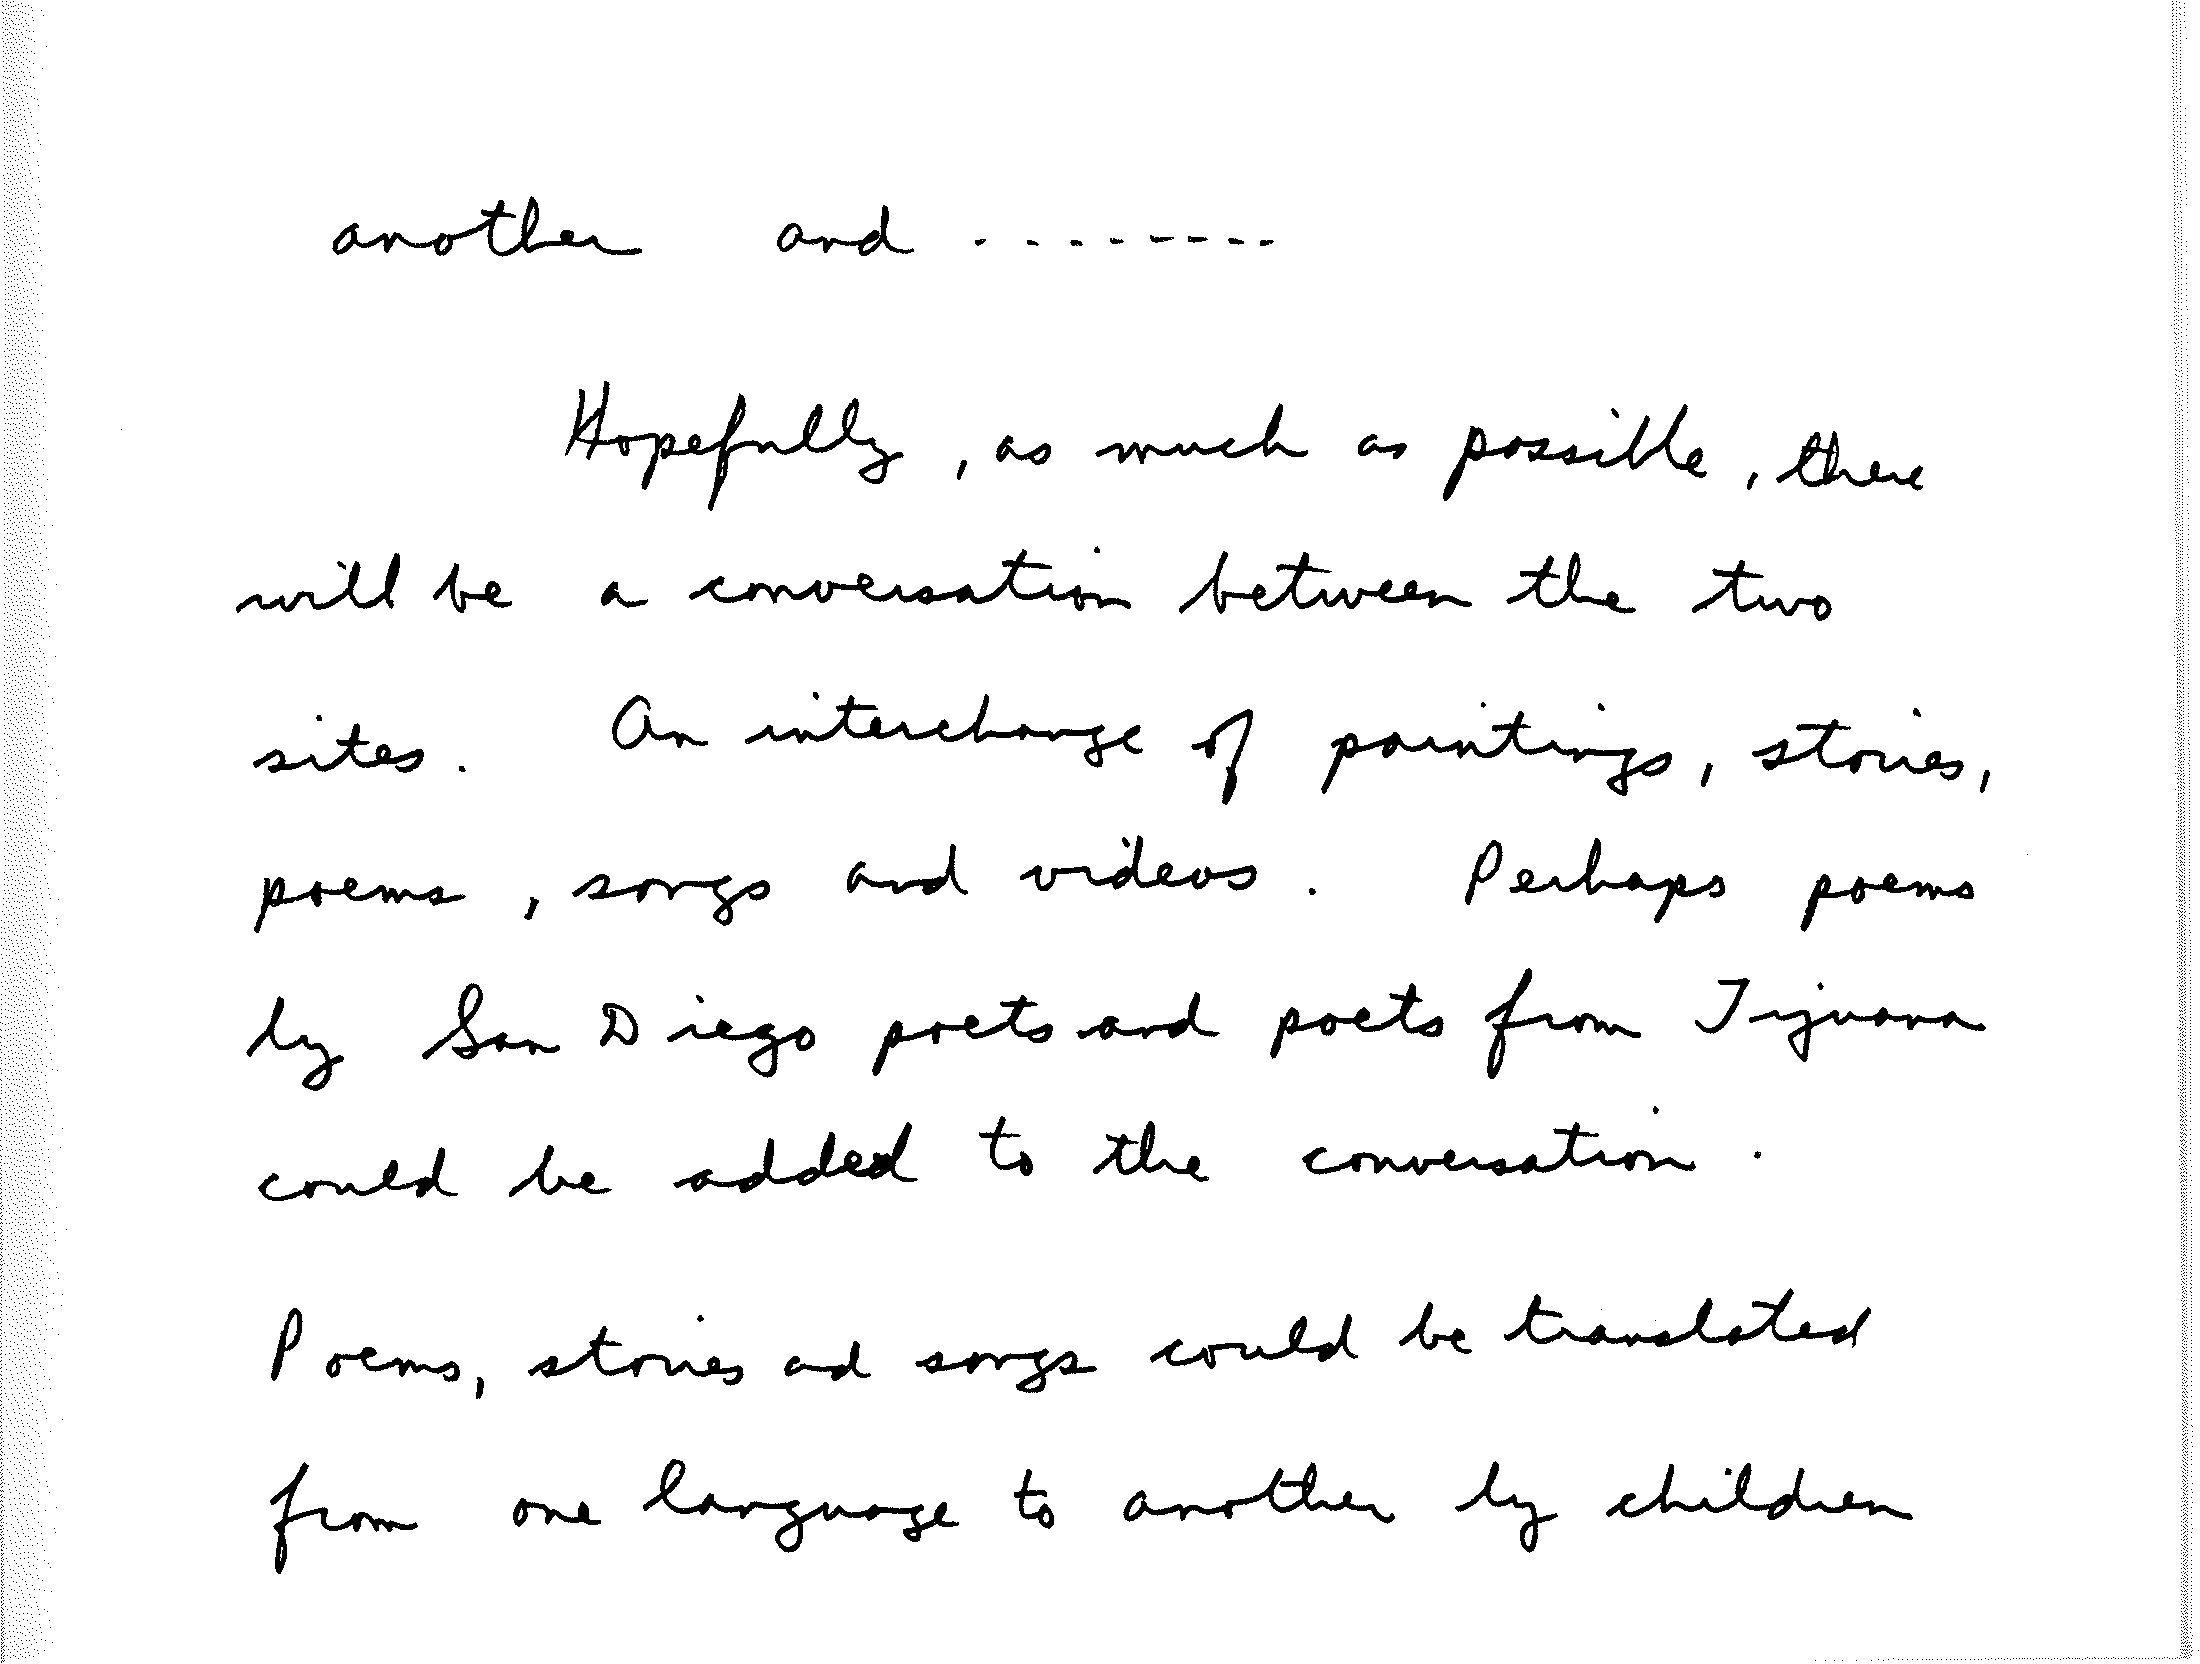 another and --------
Hopefully, as much as possible, there
will be a conversation between the two
sites. An interchange of paintings, stories,
poems, songs and videos. Perhaps poems
by San Diego poets and poets from Tijuana
could be added to the conversation.
Poems, stories ad songs could be translated
from one language to another by children